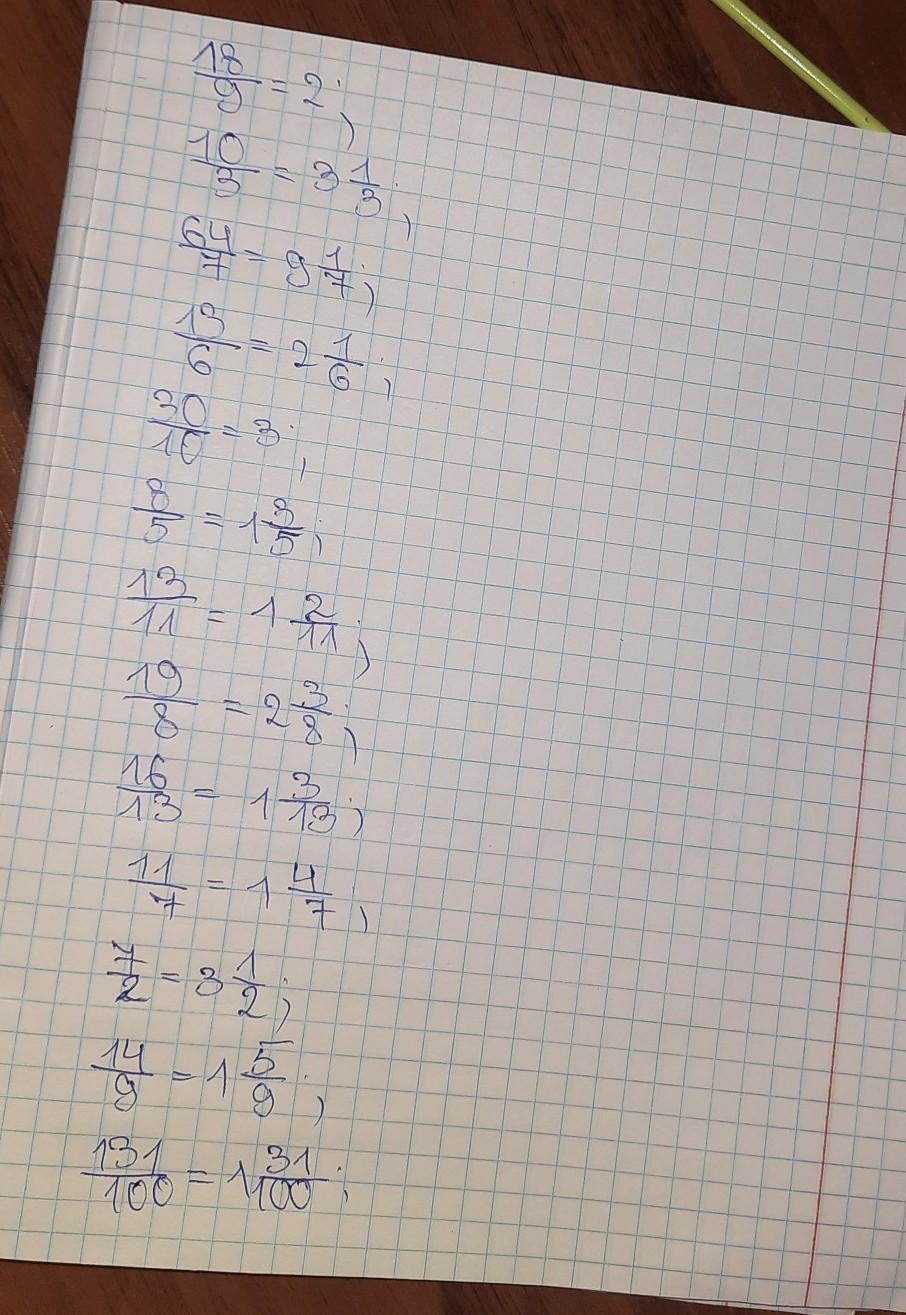 18/9 = 2;
10/3 = 3 1/3;
64/7 = 9 1/7;
13/6 = 2 1/6;
30/10 = 3;
8/5 = 1 3/5;
13/11 = 1 2/11;
19/8 = 2 3/8;
16/13 = 1 3/13;
11/7 = 1 4/7;
7/2 = 3 1/2;
14/9 = 1 5/9;
131/100 = 1 31/100;